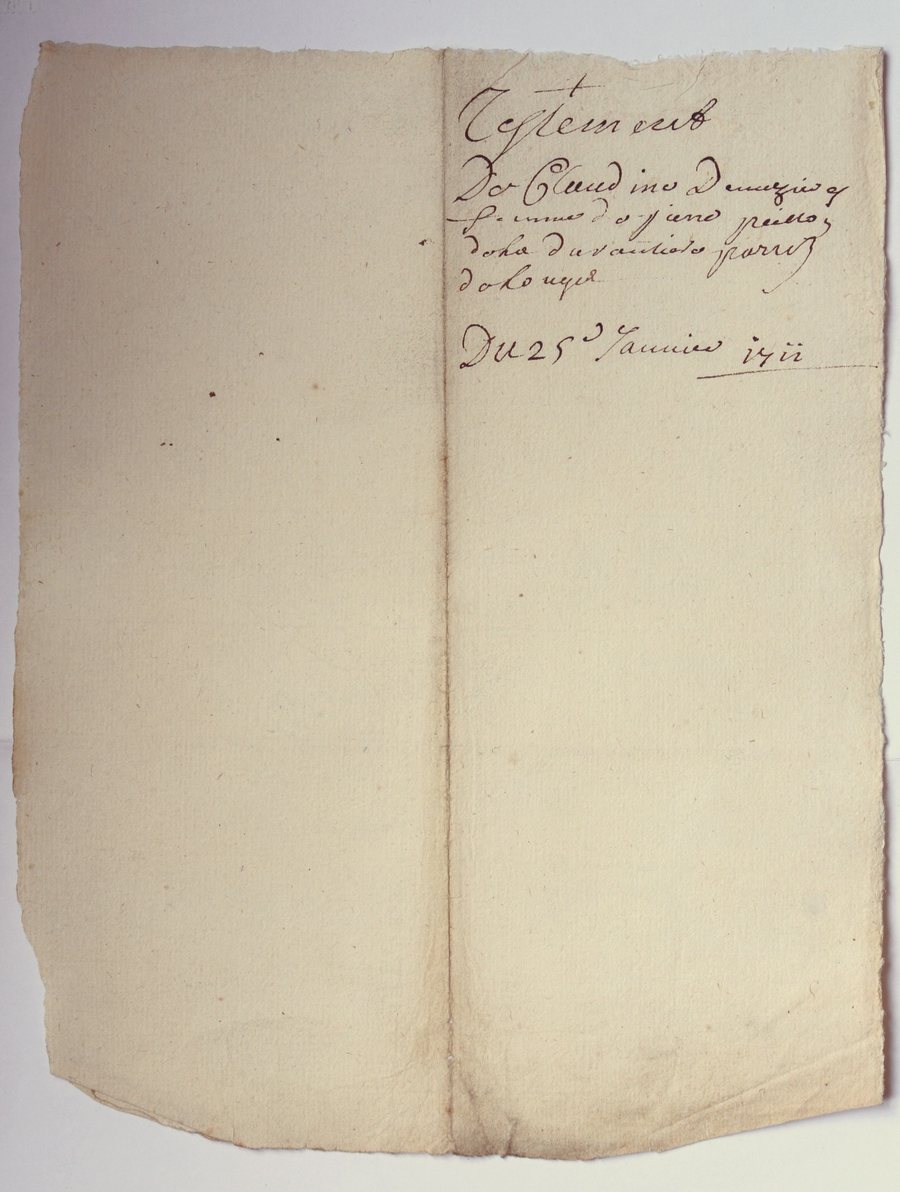 Testement
De Claudine Demezier
femme de piere peillon
de la durantiere parr
de longe
Du 25e Januier 1711